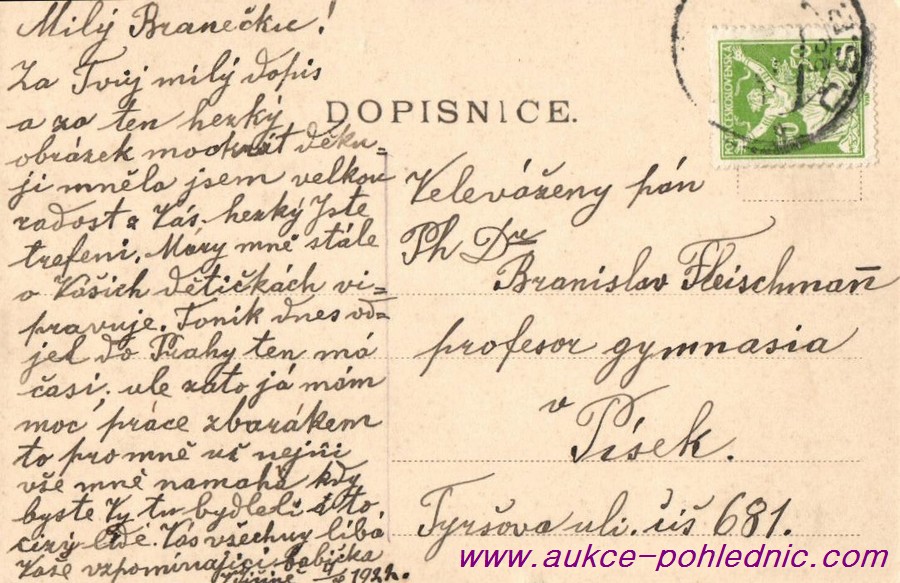 Milý Branečku!
Za Tvůj milý dopis
a za ten hezký
obrázek mockrát děku-
ji mněla jsem velkou
radost z Vás. hezký Jste
trefeni. Máry mně stále
o Vašich dětičkách vi-
pravuje. Toník dnes od-
jel do Prahy ten má
časi, ale zato já mám
moc práce
to pro mně už nejni
vše mně namahá kdy
byste Vy tu bydleli a to
cizý lidé. Vás všechny líbá
Vaše vzpomínajíci babička
1922.
DOPISNICE.
ČESKOSLOVENSKÁ
Velevážený pán
Ph Dr
Branislav Fleischmann
profesor gymnasia
v
Písek.
Tyršova uli. čís 681.
www.aukce-pohlednic.com